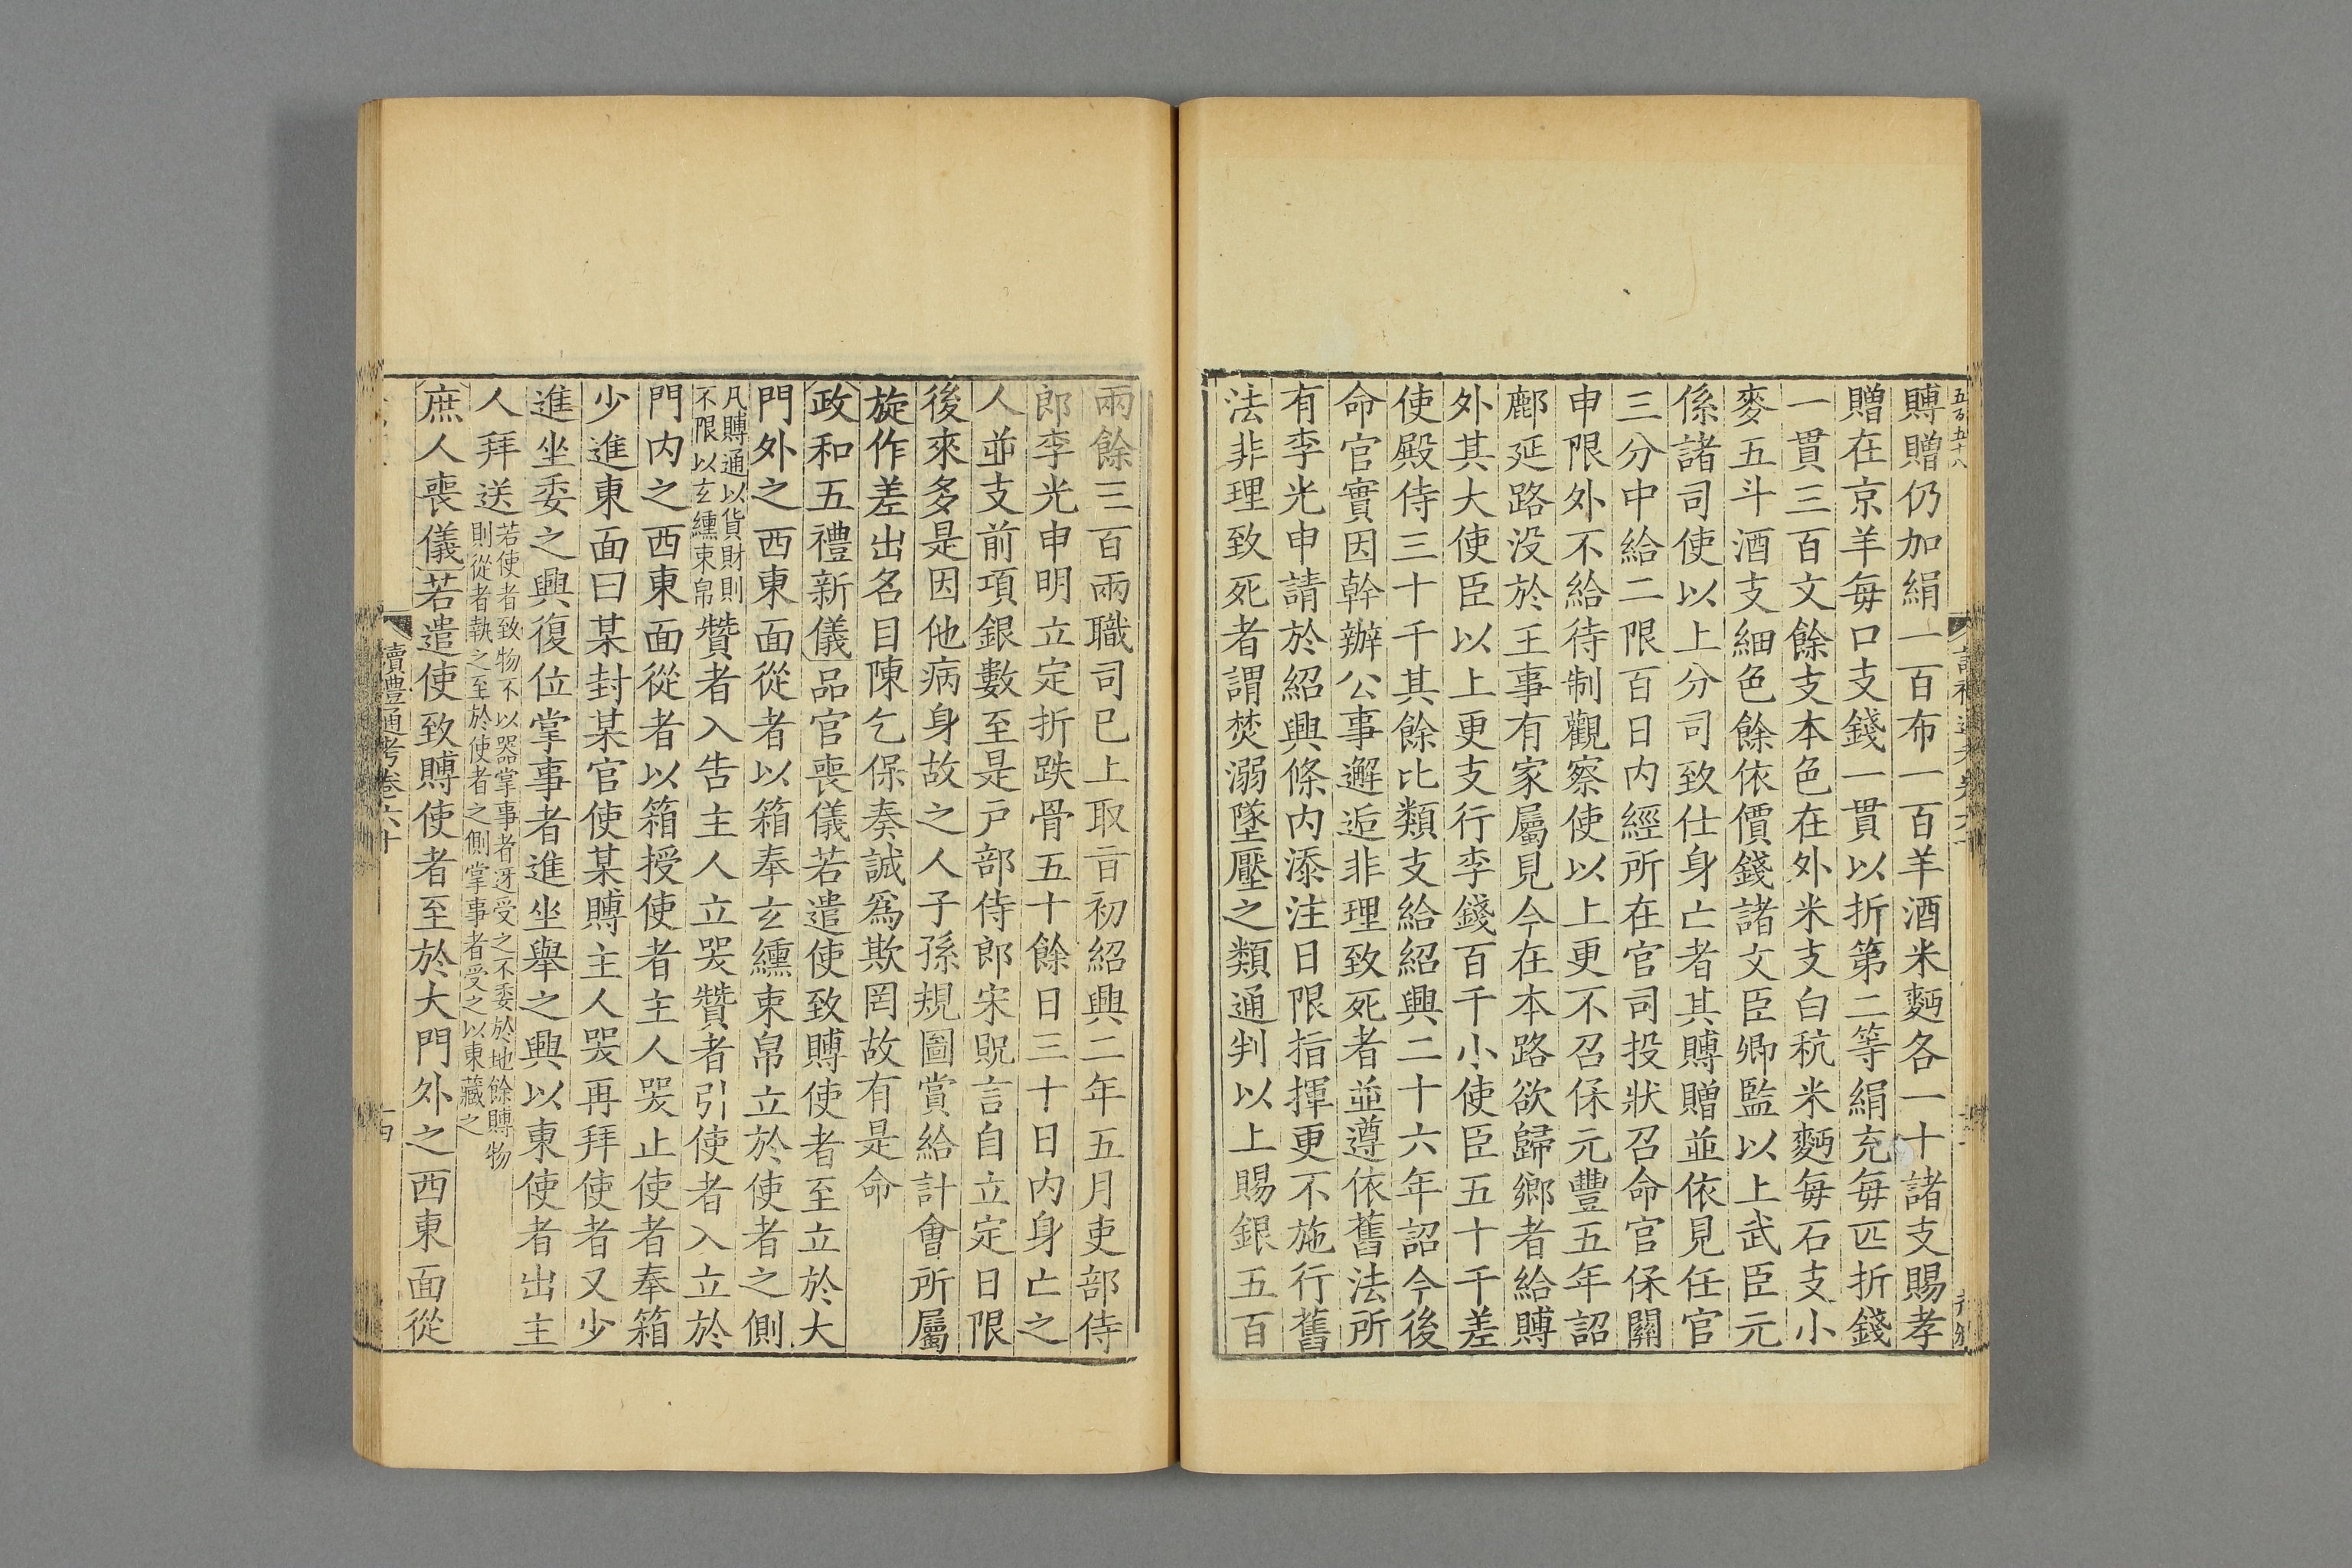 五百五十八
賻贈仍加絹一百布一百羊酒米麪各一十諸支賜孝
贈在京羊每口支錢一貫以折第二等絹充每匹折錢
一貫三百文餘支本色在外米支白秔米麪每石支小
麥五斗酒支細色餘依價錢諸文臣卿監以上武臣元
係諸司使以上分司致仕身亡者其賻贈並依見任官
三分中給二限百日內經所在官司投狀召命官保關
申限外不給待制觀察使以上更不召保元豐五年詔
鄜延路没於王事有家屬見今在本路欲歸鄉者給賻
外其大使臣以上更支行李錢百千小使臣五十千差
使殿侍三十千其餘比類支給紹興二十六年詔今後
命官實因幹辦公事邂逅非理致死者並遵依舊法所
有李光申請於紹興條内添注日限指揮更不施行舊
法非理致死者謂焚溺墜壓之類通判以上賜銀五百
兩餘三百兩職司已上取旨初紹興二年五月吏部侍
郎李光申明立定折跌骨五十餘日三十日内身亡之
人並支前項銀數至是戸部侍郎宋貺言自立定日限
後來多是因他病身故之人子孫規圖賞給計會所屬
旋作差出名目陳乞保奏誠爲欺罔故有是命
政和五禮新儀品官喪儀若遣使致賻使者至立於大
門外之西東面從者以箱奉玄纁束帛立於使者之側
凡賻通以貨財則
不限以玄纁束帛贊者入告主人立哭贊者引使者入立於
門内之西東面從者以箱授使者主人哭止使者奉箱
少進東面曰某封某官使某賻主人哭再拜使者又少
進坐委之興復位掌事者進坐舉之興以東使者出主
人拜送若使者致物不以器掌事者迓受之不委於地餘賻物
則從者執之至於使者之側掌事者受之以東藏之
庶人喪儀若遣使致賻使者至於大門外之西東面從
讀禮通考卷六十